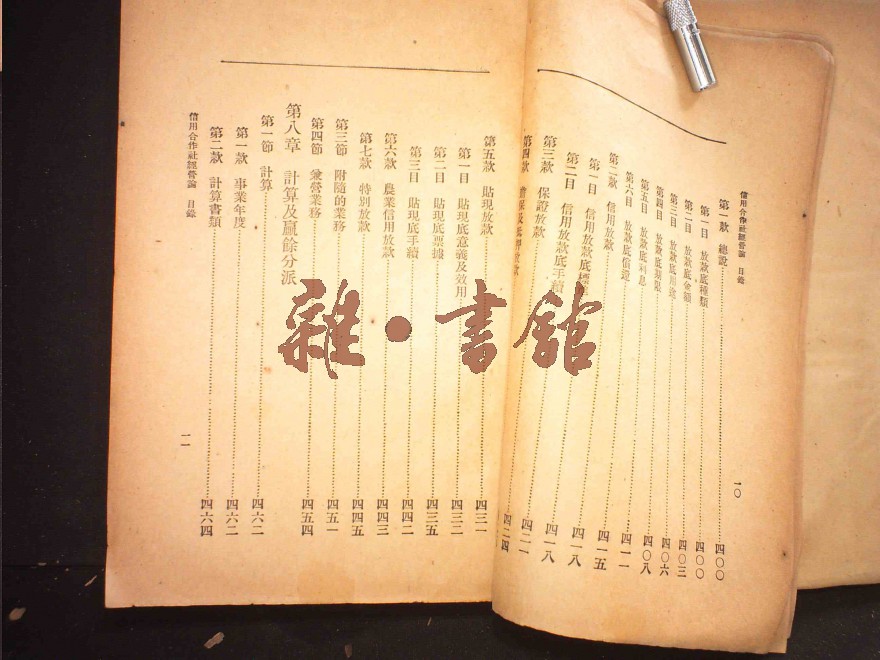 信用合作社經營論 目錄
第一款 總說 四〇〇
第一目 放款底種類 四〇〇
第二目 放款底金額 四〇三
第三目 放款底用途 四〇六
第四目 放款底期限 四〇八
第五目 放款底利息
第六目 放款底償還 四一一
第二款 信用放款 四一五
第一目 信用放款底標 四一八
第二目 信用放款底手續 四一八
第三款 保證放款 四二一
第四款 擔保及抵押放款 四二四
一〇
第五款 貼現放款 四三一
第一目 貼現底意義及效用 四三二
第二目 貼現底票據 四三五
第三目 貼現底手續 四四二
第六款 農業信用放款 四四三
第七款 特別放款 四四五
第三節 附隨的業務 四五一
第四節 兼營業務 四五四
第八章 計算及贏餘分派
第一節 計算 四六二
第一款 事業年度 四六二
第二款 計算書類 四六四
信用合作社經營論 目錄
一一
雜·書館